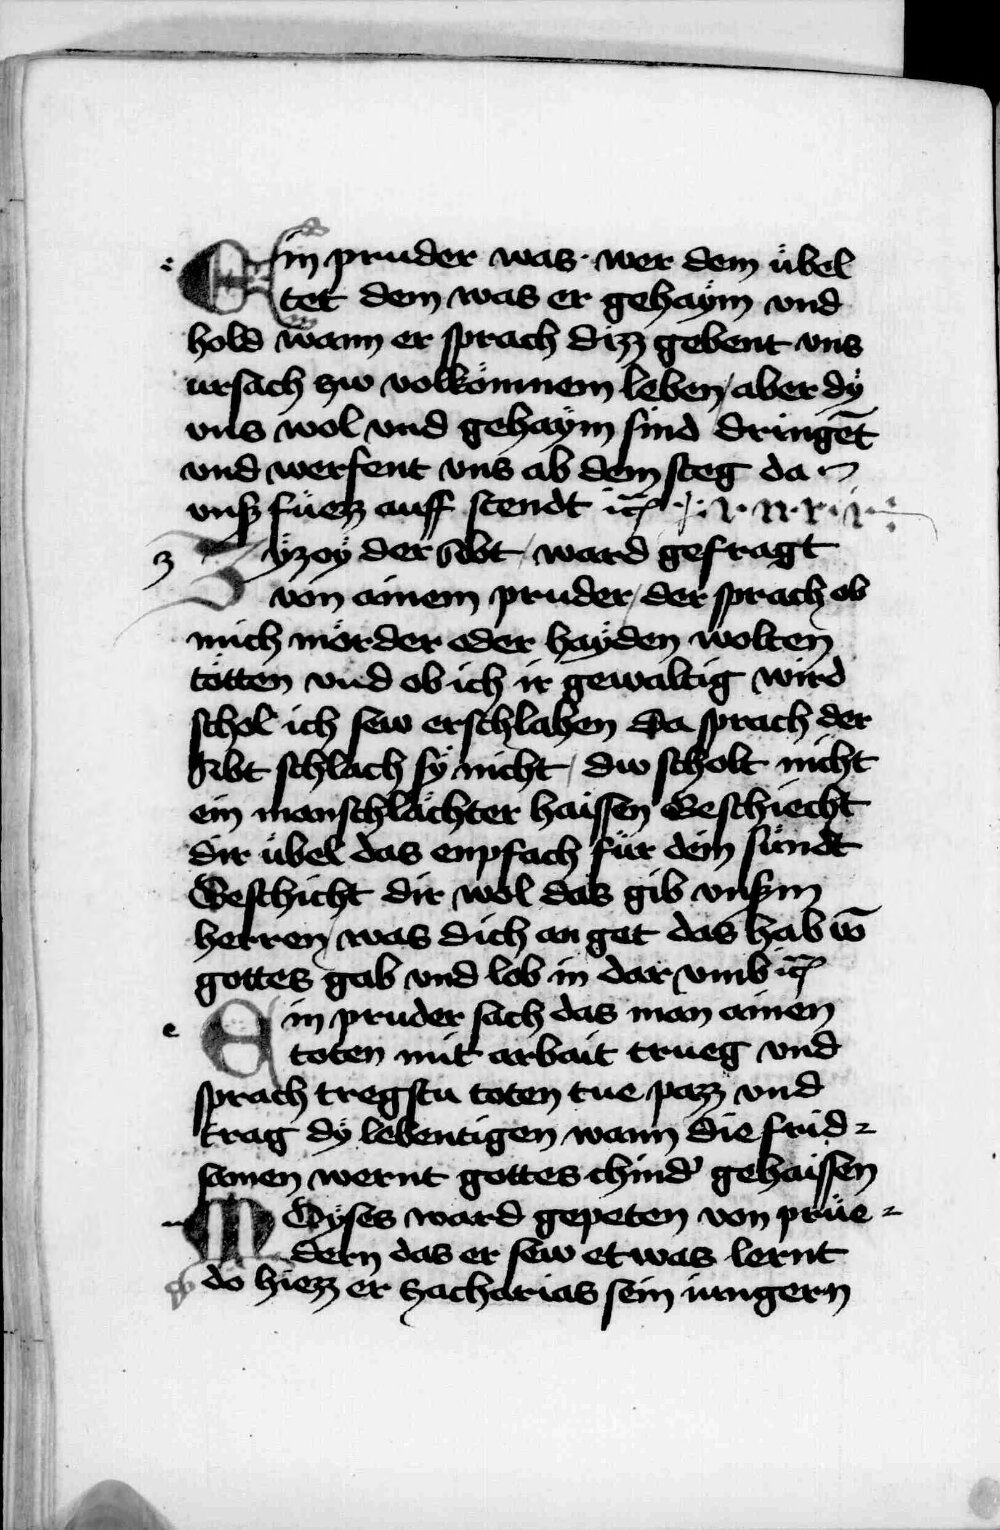 Ein pruder was · wer dem übel
tet dem was er gehaÿm vnd
hold wann er sprach dizz gebent vns
ursach zw volkömnem leben / aber dÿ
vns wol vnd gehaÿm sind dringēt
vnd werfent vns ab dem steg da
vnß füezz auff stendt
Zÿzoÿ der Abt / ward gefragt
von ainem pruder / der sprach ob
mich mörder oder haÿden wolten
tötten vnd ob ich ir gewaltig wird
schol ich sew erschlahen Da sprach der
Abt schlach sÿ nicht / dw scholt nicht
ein manschlächter haissen Geschiecht
dir übel das enpfach für dein sündt
Geschicht dir wol das gib vnßm
herren / was dich an get das hab vō
gottes gab vnd lob in dar vmb
Ein pruder sach das man ainen
toten mit arbait trueg vnd
sprach tregstu toten tue pazz vnd
trag dÿ lebentigen wann die frid=
samen wernt gottes chind' gehaissen
MOÿses ward gepeten von prüe=
dern das er sew etwas lernt
do hiezz er zacharias sein iungern